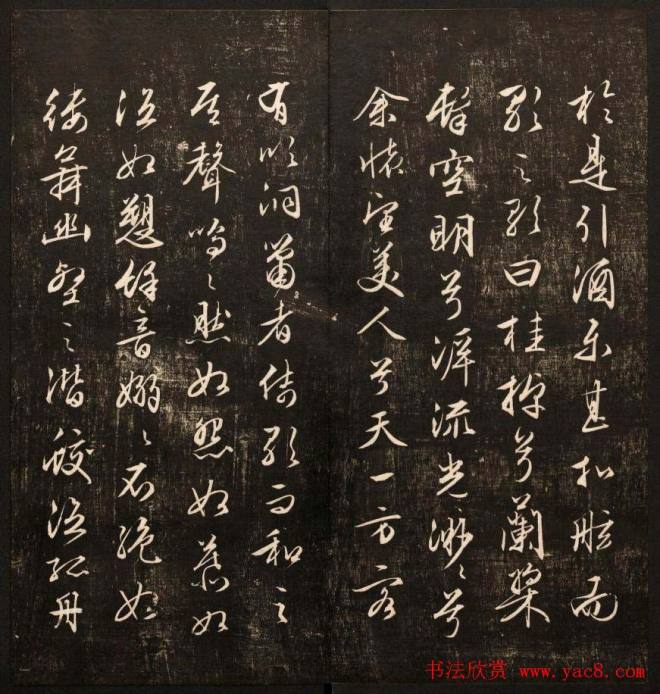 於是引酒樂甚扣舷而
歌之歌曰桂棹兮蘭槳
擊空明兮泝流光渺渺兮
余懷望美人兮天一方客
有吹洞簫者倚歌而和之
其聲嗚嗚然如怨如慕如
泣如愬餘音嫋嫋不絕如
縷舞幽壑之潛蛟泣孤舟
书法欣赏 www.yac8.com